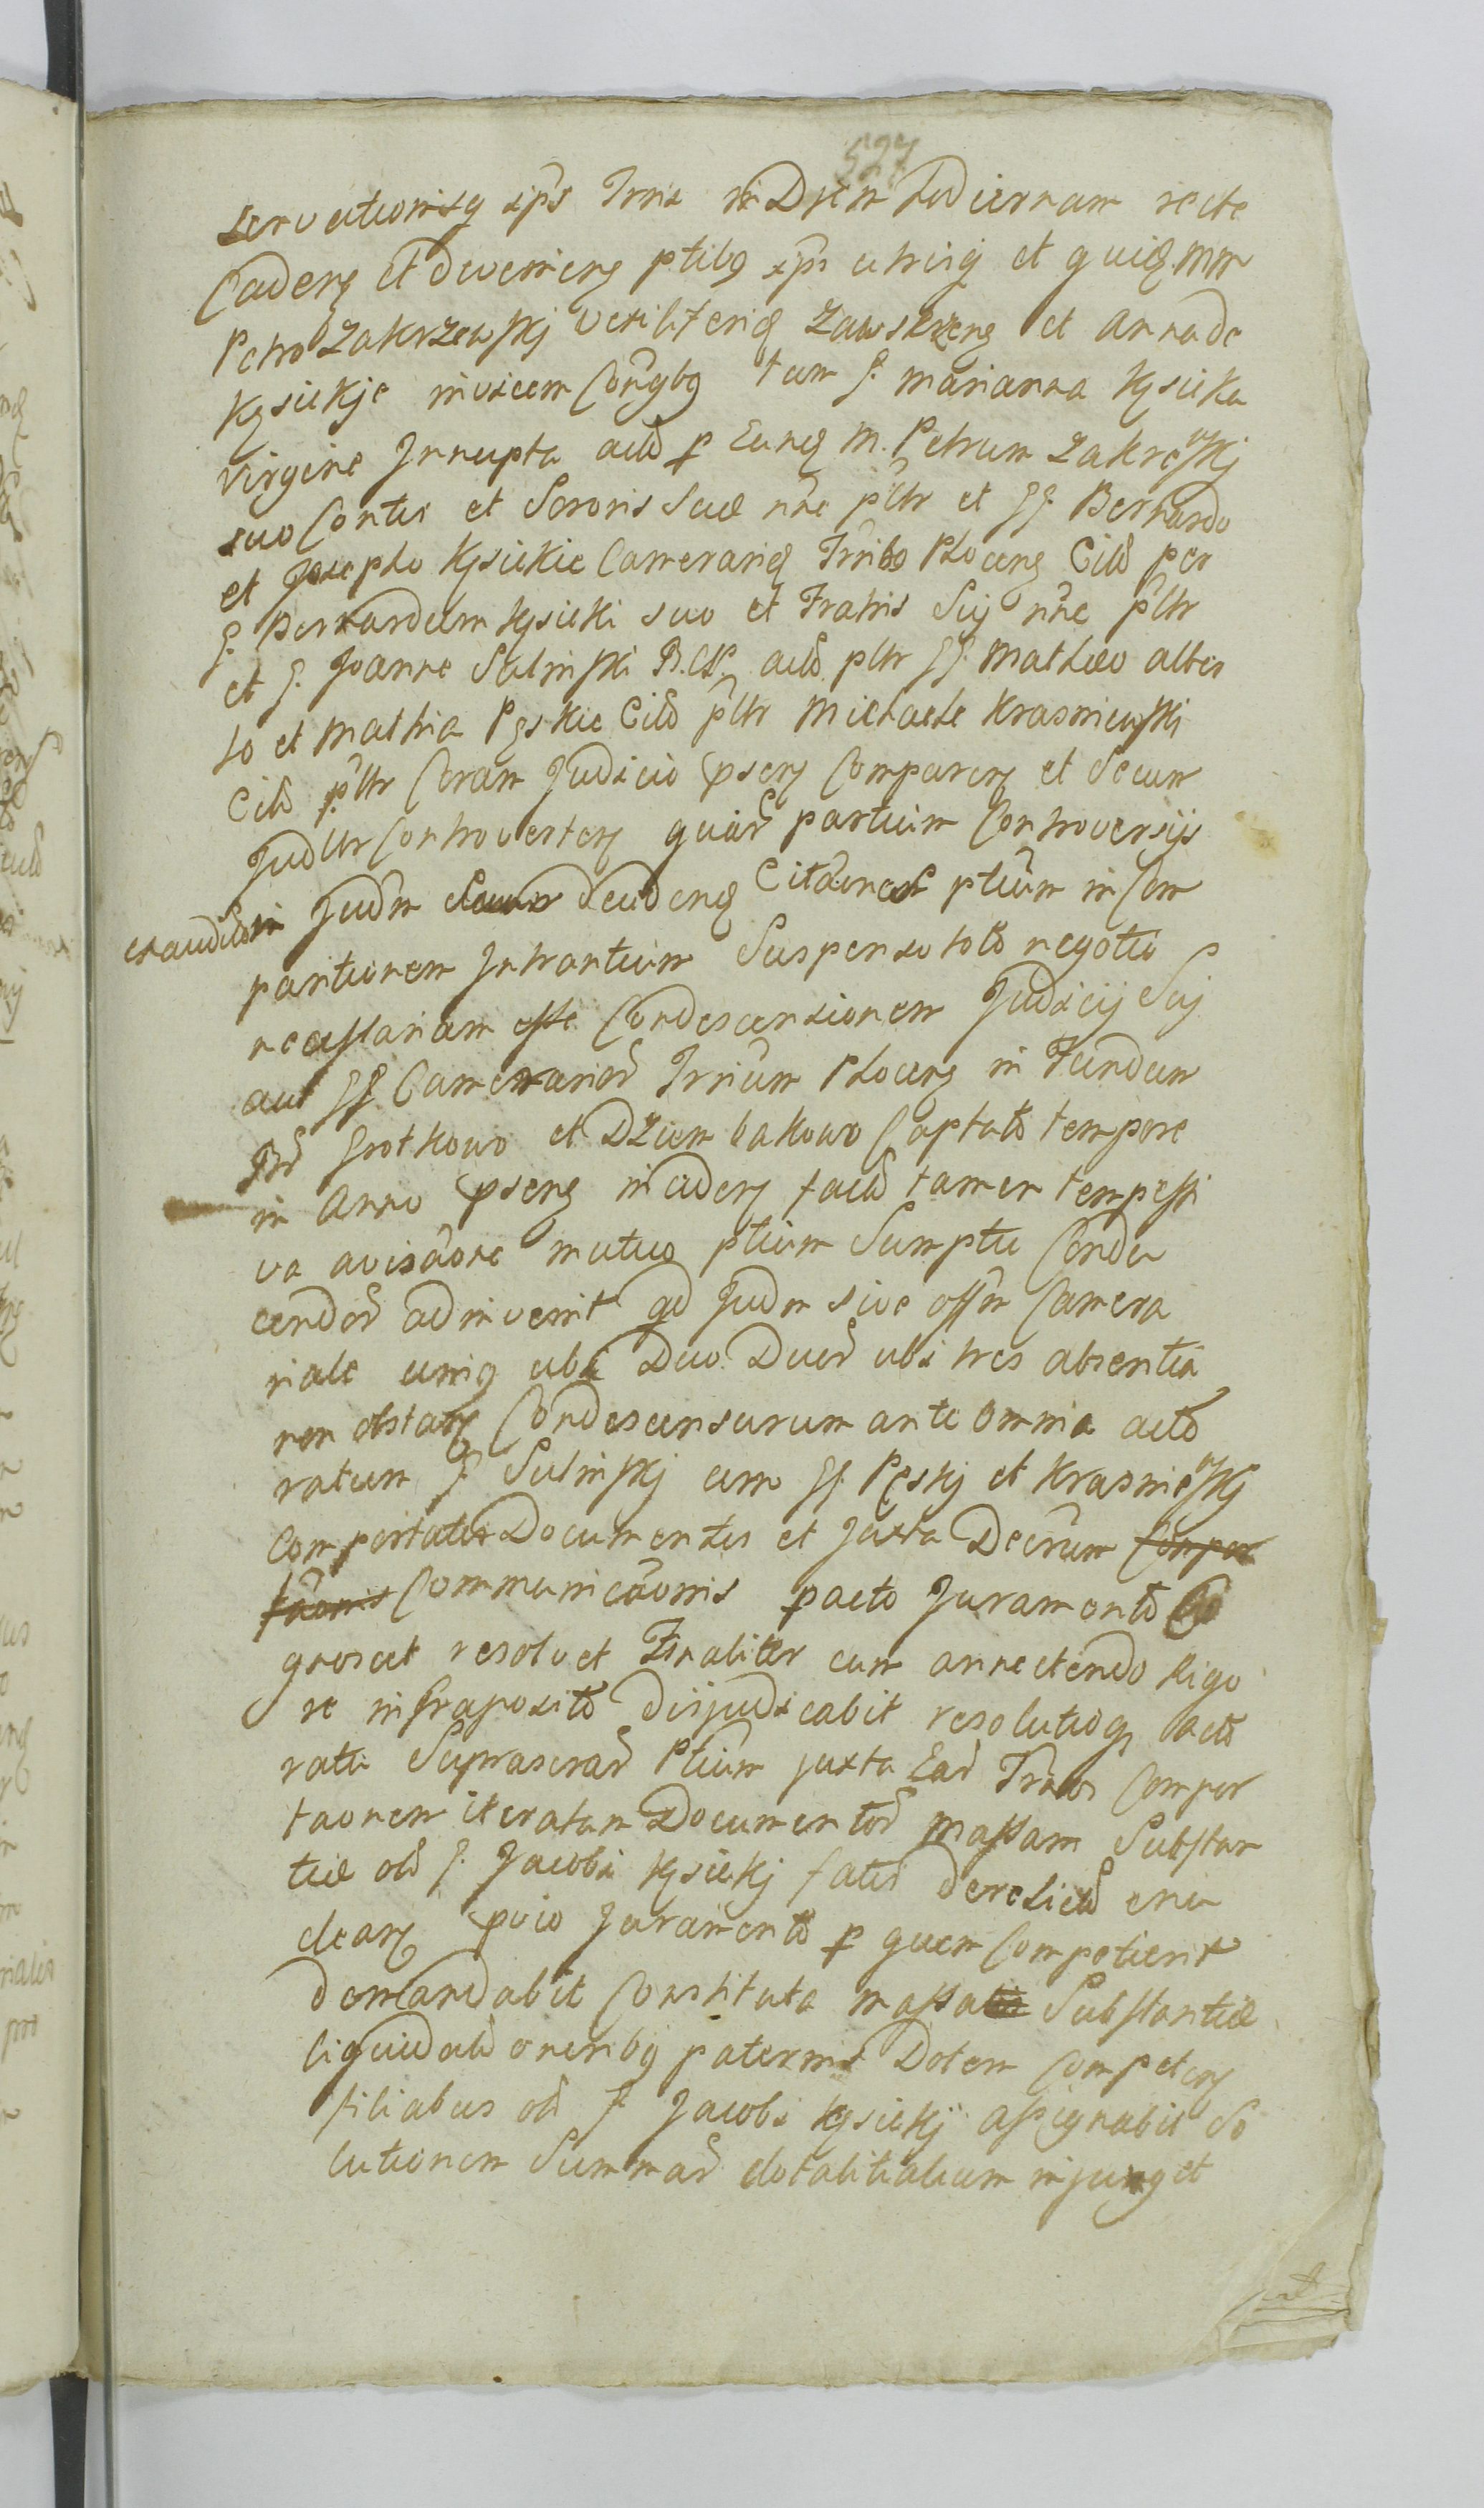 servationisq ipš Trris in Diem hodiernam recte
Caden et deveniens ptibq ipš utrisq et quid. Mm
Petro Zakrzewskj vexilliferid Zawskrzens et Anna de
Kęsickje invicem Conjgbq tum G. Marianna Kęsicka
Virgine Innupta act p Eund M. Petrum Zakrzewskj
suo Contis et Sororis Suæ nne pltr et GG. Bernardo
et Josepho Kęsickie Camerarid Trribq Plocens Citt per
G. Bernardum Kęsicki suo et Fratris Suj nne pltr
et G. Joanne Sulinski B.C.P. act pltr GG. Mathæo Alber
to et Mathia Pęskie Citt pltr Michaele Krasniewski
Citt pltr Coram Judicio psen Comparen et Secum
Judltr Controverten quar partium Controversijs
exauditis in Judm deudend Citaones ptium in Com
paritionem Intrantium Suspenso toto negotio
necessariam esse Condescensionem Judicij Suj
aut GG Camerarior Trrium Plocens in Fundum
Br Grotkowo et Dziembakowo Captato tempore
in Anno psens inciden facta tamen tempesti
va avisaone mutuo ptium Sumptu Condu
cendor adinvenit qd Judm sive Offm Camera
riale uniq ubi Duo Duor ubi tres absentia
non obstan Condescensurum ante omnia acto
ratum G. Sulinskj cum GG. Pęskj et Krasniewskj
Comportatis Documentis et juxta Decrum Compor
taonis Communicaonis pacto Juramento Co
gnoscet resolvet Finaliter cum annectendo Rigo
re infraposito dijudicabit resolutoq acto
ratu Suprascrar Ptium juxta Ear Trans Compor
taonem iteratam Documentor massam Substan
tiæ olt G. Jacobi Kęsickj fatis derelict enu
clean pvio Juramento p quem Competierit
demandabit Constituta massa Substantiæ
liquidatt oneribq paternis Dotem Competen
filiabus olt G. Jacobi Kęsickj assignabit So
lutionem Summar dotalitialium injunget